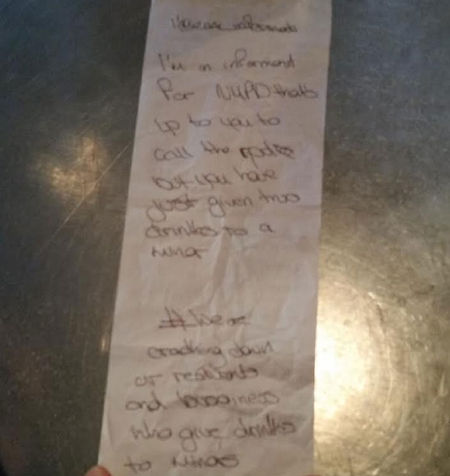 I'm an informant
For NYPD thats
up to you to
call the
but you have
just given two
drinks to a
minor
# We're
cracking down
or residents
and bussiness
who give drinks
to minors